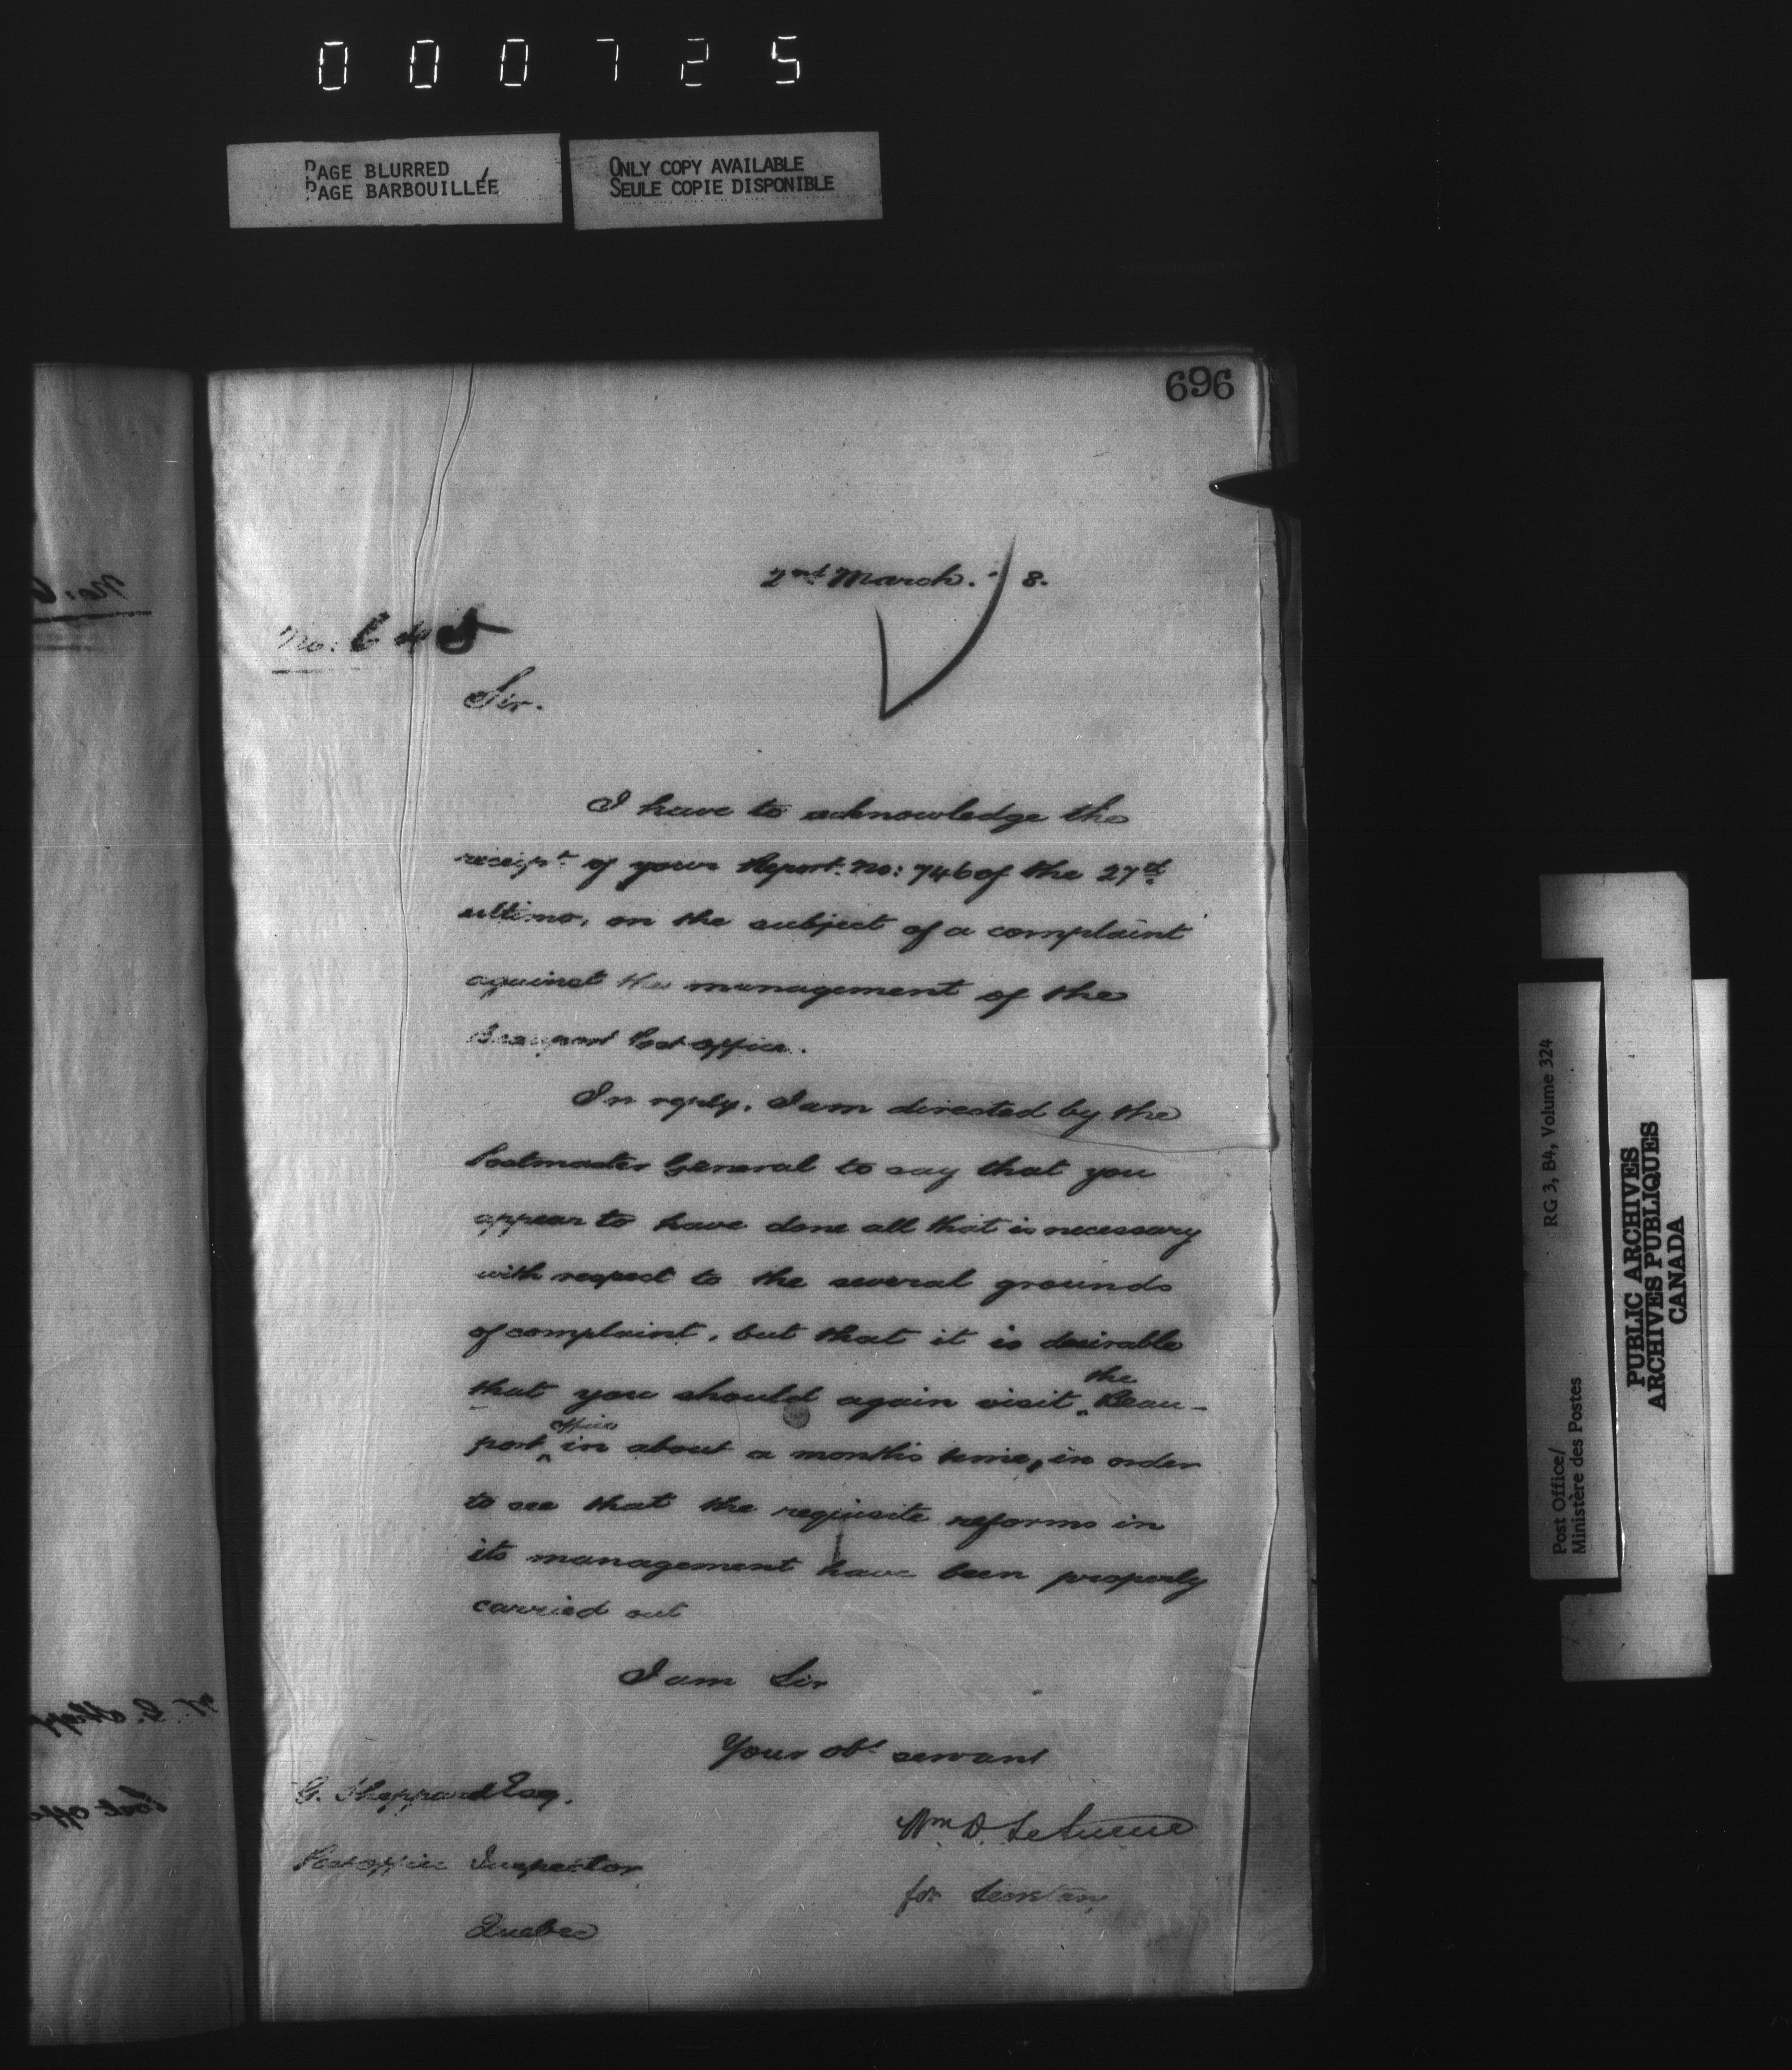 000725
PAGE BLURRED
PAGE BARBOUILLÉE
ONLY COPY AVAILABLE
SEULE COPIE DISPONIBLE
696
2nd March. 8.
No:
Sir.
I have to acknowledge the
receipt of your Report. No: 746 of the 27th
ultimo, on the subject of a complaint
against the management of the
Beauport Post office.
In reply, I am directed by the
Postmaster General to say that you
appear to have done all that is necessary
with respect to the several grounds
of complaint, but that it is desirable
that you should again visit the Beau-
port office in about a months time, in order
to see that the requisite reforms in
its management have been properly
carried out
I am Sir
Your obt servant
G. Sheppard Esq.
Wm D. LeSueur
Post office Inspector
for Secretary
Quebec
Post Office/
Ministère des Postes
RG 3, B4, Volume 324
PUBLIC ARCHIVES
ARCHIVES PUBLIQUES
CANADA